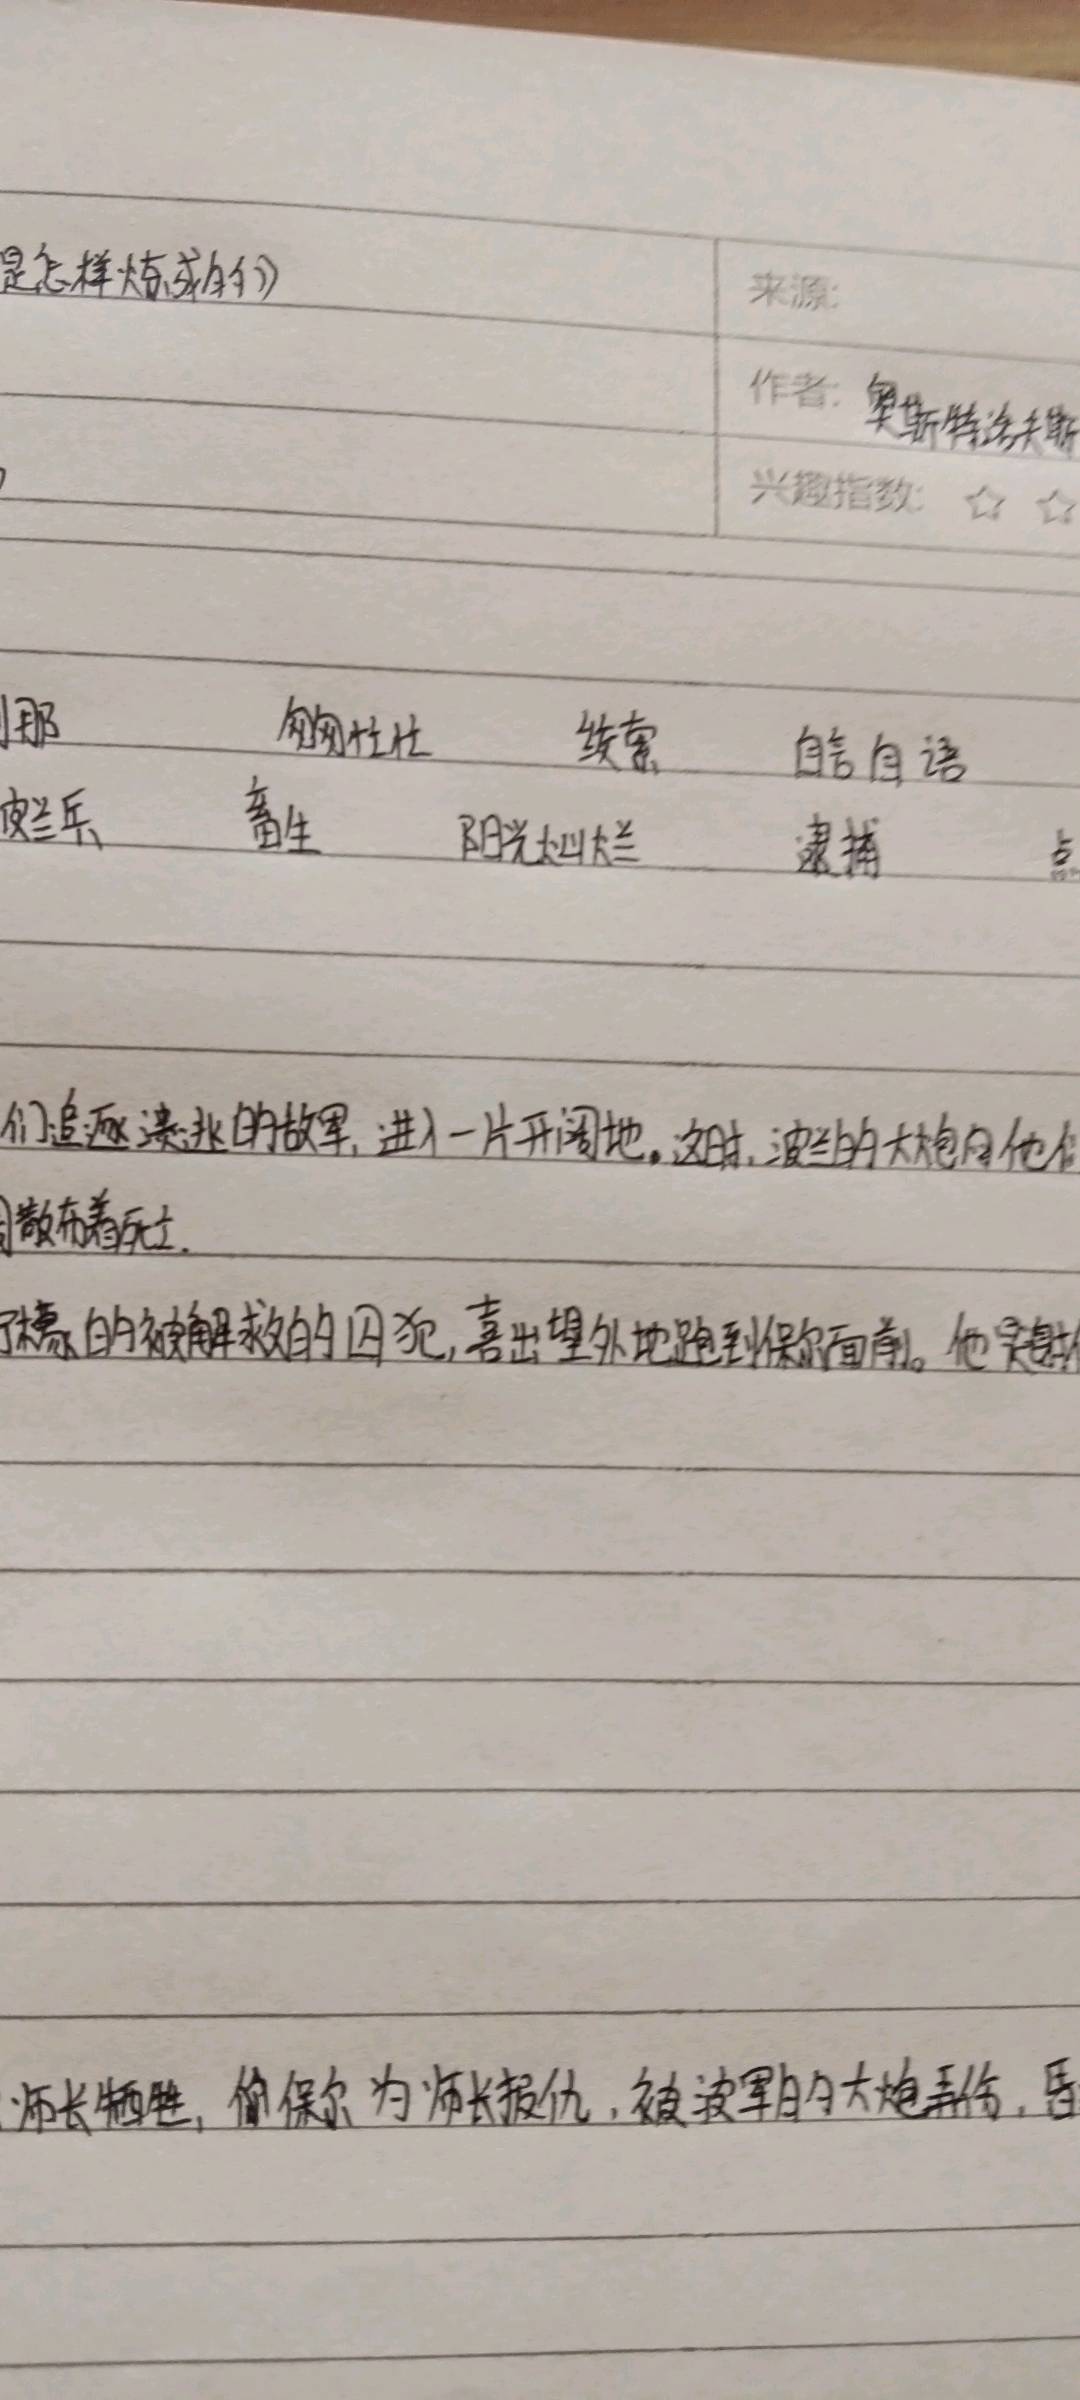 是怎样炼成的》
来源:
作者: 奥斯特洛夫斯
兴趣指数: ☆ ☆
那 匆匆忙忙 绞索 自言自语
波兰兵 畜生 阳光灿烂 逮捕 点
们追逐溃逃的敌军,进入一片开阔地。这时,波兰的大炮向他们
散布着死亡.
的被解救的囚犯,喜出望外地跑到保尔面前。他是
师长牺牲, 保尔为师长报仇,被波军的大炮弄伤,昏